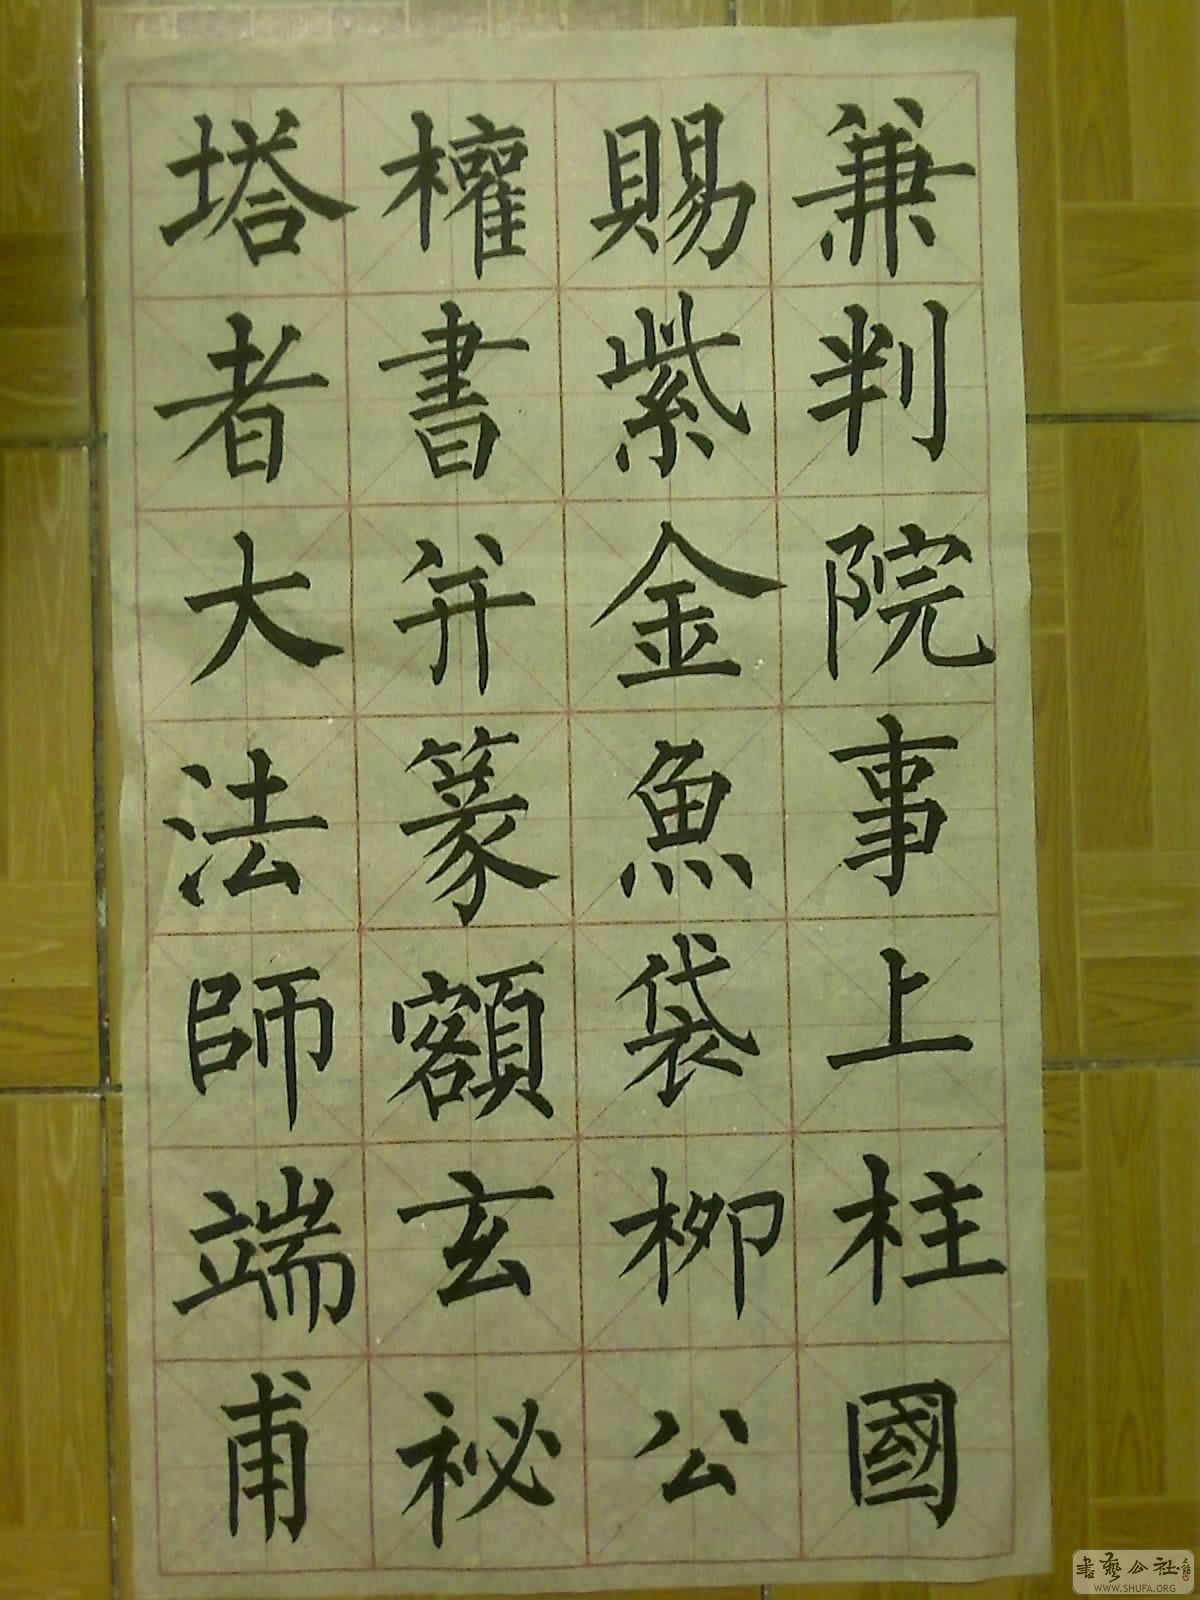 兼判院事上柱國
賜紫金魚袋柳公
權書并篆額玄祕
塔者大法師端甫
書藝公社
WWW.SHUFA.ORG